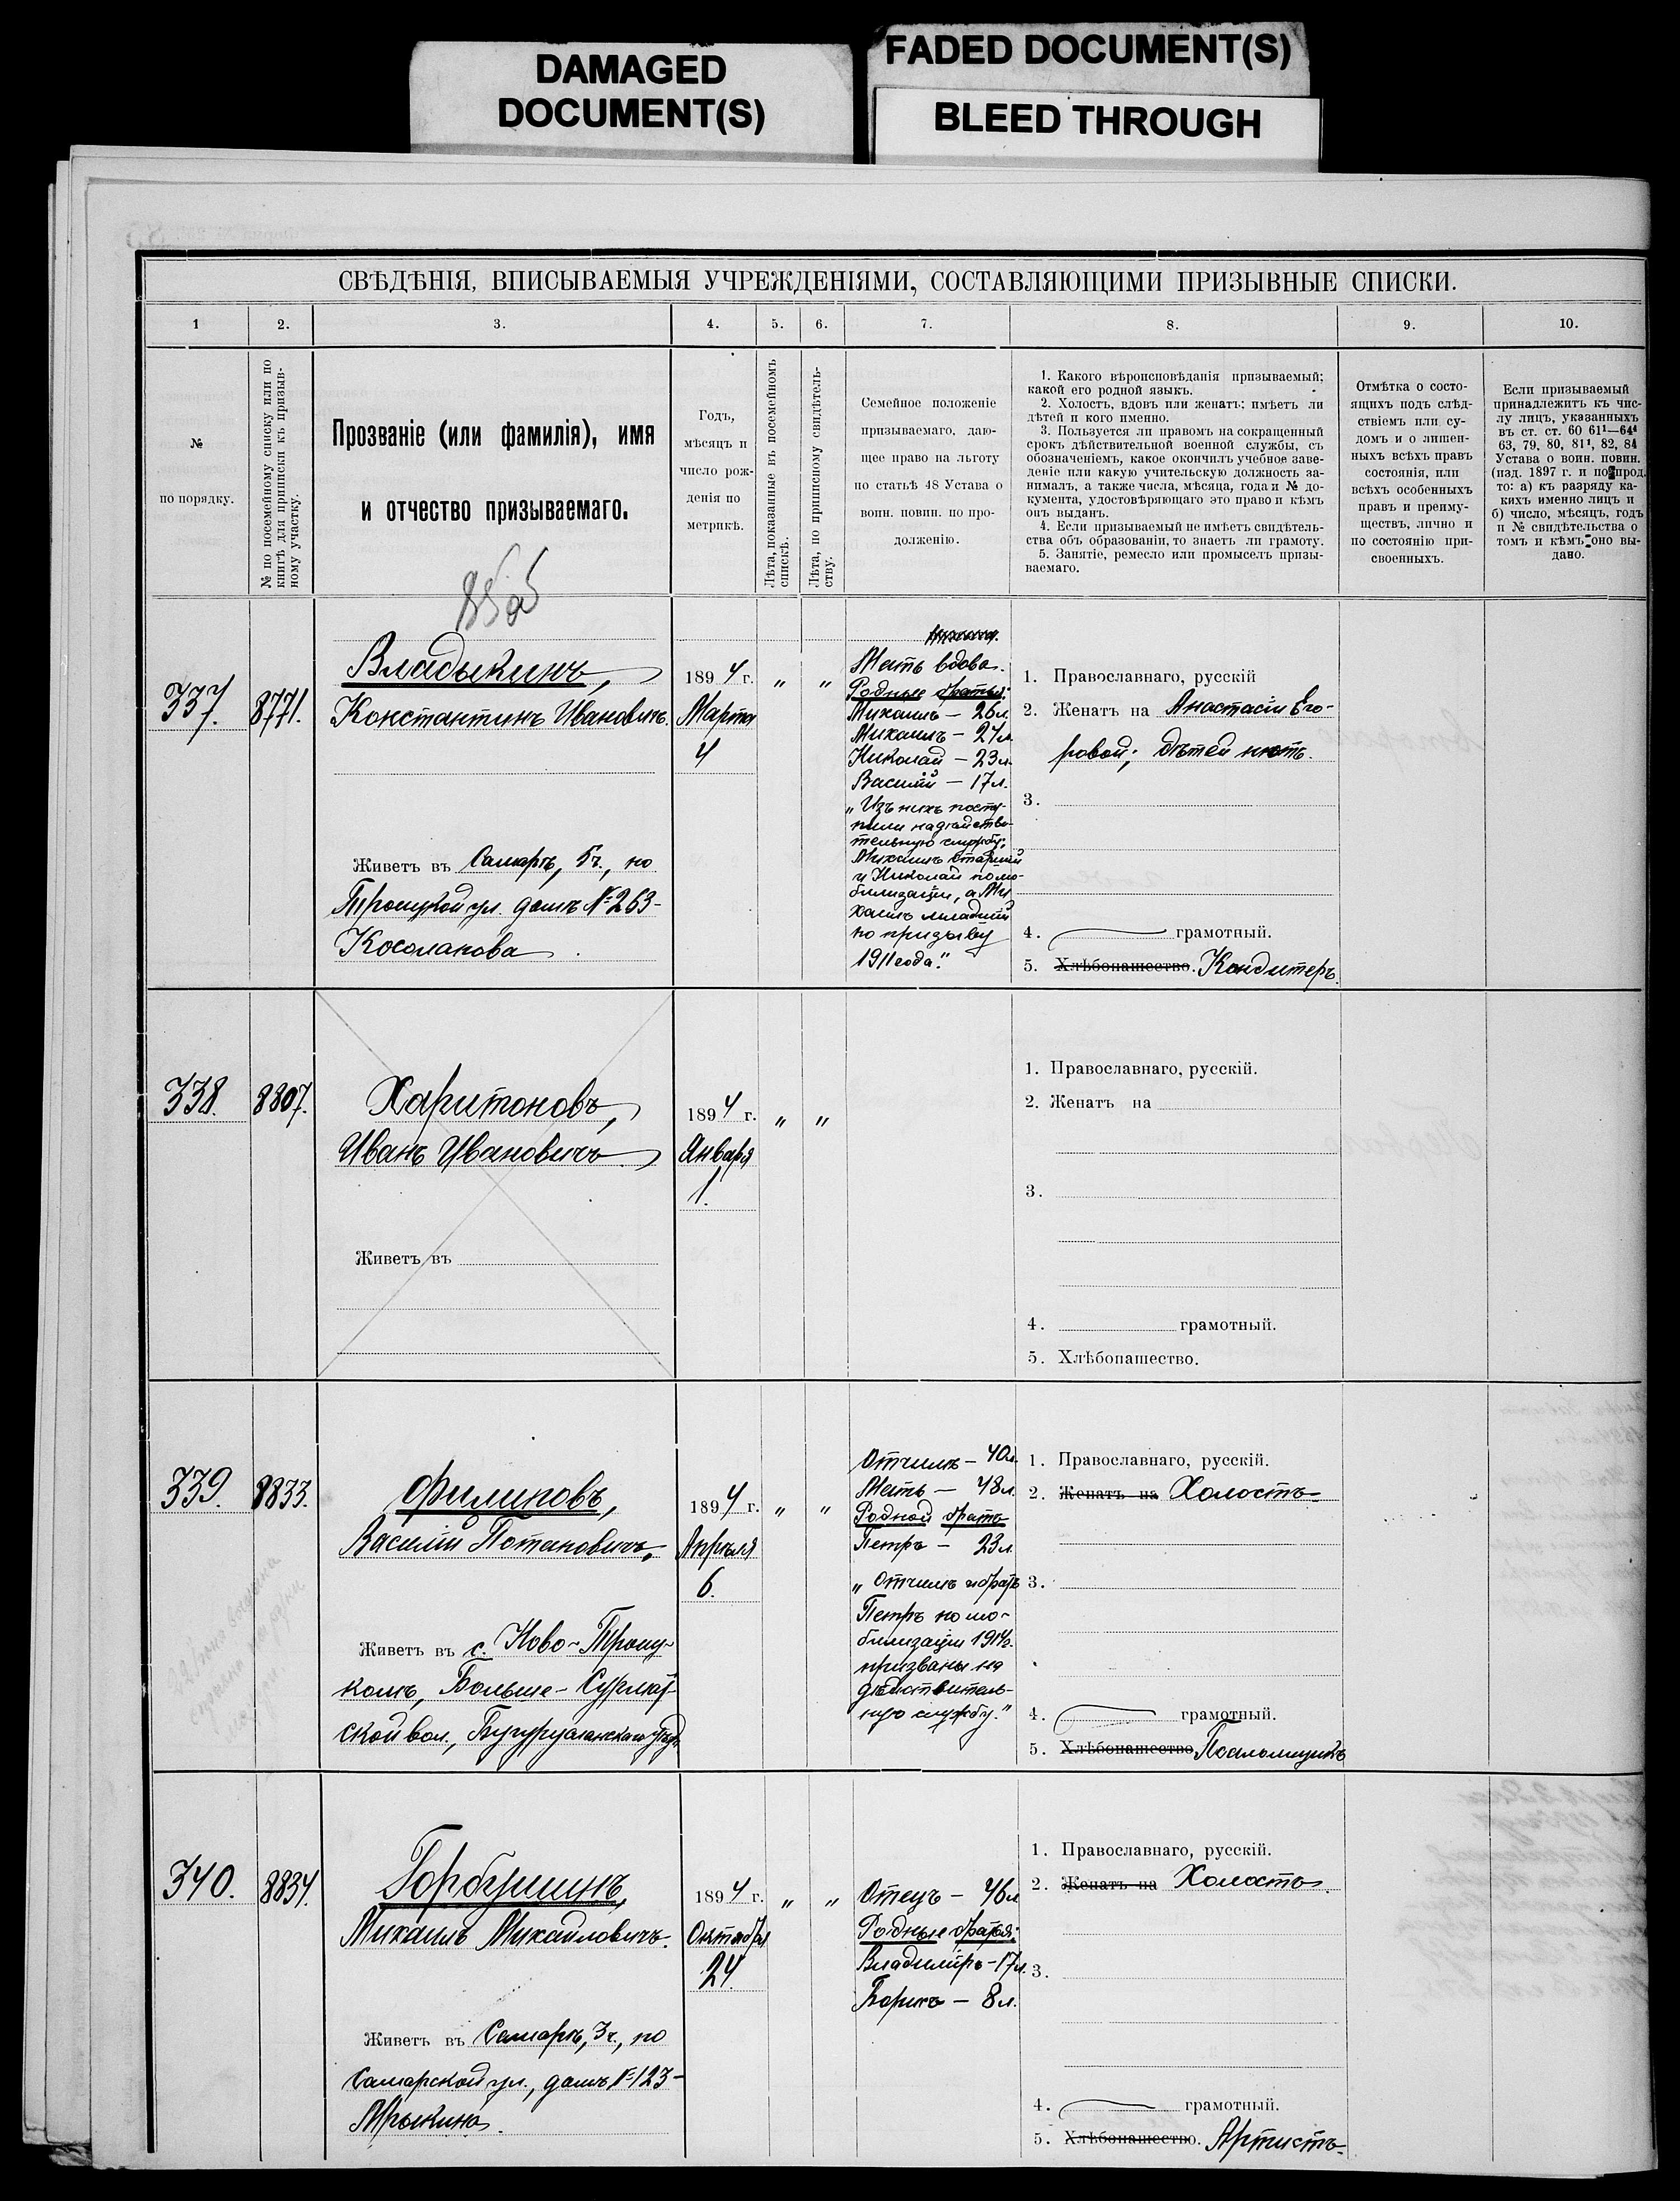 DAMAGED
DOCUMENT(S)
FADED DOCUMENT(S)
BLEED THROUGH
СВѢДѢНІЯ, ВПИСЫВАЕМЫЯ УЧРЕЖДЕНІЯМИ, СОСТАВЛЯЮЩИМИ ПРИЗЫВНЫЕ СПИСКИ.
1 2. 3. 4. 5. 6. 7. 8. 9. 10.
№
по порядку.
№ по посемейному списку или по
книгѣ для приписки къ призыв-
ному участку.
Прозваніе (или фамилія), имя
и отчество призываемаго.
Годъ,
мѣсяцъ и
число рож-
денія по
метрикѣ.
Лѣта, показанные въ посемейномъ
спискѣ.
Лѣта, по приписному свидѣтель-
ству.
Семейное положеніе
призываемаго, даю-
щее право на льготу
по статьѣ 48 Устава о
воин. повин. по про-
долженію.
1. Какого вѣроисповѣданія призываемый;
какой его родной языкъ.
2. Холостъ, вдовъ или женатъ; имѣетъ ли
дѣтей и кого именно.
3. Пользуется ли правомъ на сокращенный
срокъ дѣйствительной военной службы, съ
обозначеніемъ, какое окончилъ учебное заве-
деніе или какую учительскую должность за-
нималъ, а также числа, мѣсяца, года и № до-
кумента, удостовѣряющаго это право и кѣмъ
онъ выданъ.
4. Если призываемый не имѣетъ свидѣтель-
ства объ образованіи, то знаетъ ли грамоту.
5. Занятіе, ремесло или промыселъ призы-
ваемаго.
Отмѣтка о состо-
ящихъ подъ слѣд-
ствіемъ или су-
домъ и о лишен-
ныхъ всѣхъ правъ
состоянія, или
всѣхъ особенныхъ
правъ и преиму-
ществъ, лично и
по состоянію при-
своенныхъ.
Если призываемый
принадлежитъ къ чис-
лу лицъ, указанныхъ
въ ст. ст. 60 61¹—64⁴
63, 79, 80, 81¹, 82, 84
Устава о воин. повин.
(изд. 1897 г. и по прод.
то: а) къ разряду ка-
кихъ именно лицъ и
б) число, мѣсяцъ, годъ
и № свидѣтельства о
томъ и кѣмъ оно вы-
дано.
337. 8771.
Владыкинъ,
Константинъ Ивановичъ.
Живетъ въ Самарѣ, 5ч., по
Троицкой ул. домъ №263-
Косолапова
1894 г.
Марта
4
" "
Мать вдова.
Родные братья:
Михаилъ — 26л.
Михаилъ — 24л.
Николай — 23л.
Василій — 17л.
„Изъ нихъ посту-
пили на дѣйстви-
тельную службу:
Михаилъ старшій
и Николай по мо-
билизаціи, а Ми
хаилъ младшій
по призыву
1911 года."
1. Православнаго, русскій
2. Женатъ на Анастасіи Его-
ровой; дѣтей нѣтъ.
3.
4. грамотный.
5. Хлѣбопашество. Кондитеръ.
338. 8807.
Харитоновъ,
Иванъ Ивановичъ
Живетъ въ
1894 г.
Января
1.
" "
1. Православнаго, русскій.
2. Женатъ на
3.
4. грамотный.
5. Хлѣбопашество.
339. 8833.
Филиповъ,
Василій Потаповичъ.
Живетъ въ с. Ново-Троиц-
комъ, Больше-Сурмет-
ской вол., Бугурусланскаго уѣзд.
1894 г.
Апрѣля
6.
" "
Отчимъ — 40л.
Мать — 48л.
Родной братъ
Петръ — 23л.
„Отчимъ и братъ
Петръ по мо-
билизаціи 1914г.
призваны на
дѣйствитель-
ную службу."
1. Православнаго, русскій.
2. Женатъ на Холостъ
3.
4. грамотный.
5. Хлѣбопашество Псаломщикъ
340. 8834.
Горбушинъ,
Михаилъ Михайловичъ.
Живетъ въ Самарѣ, 3ч., по
Самарской ул., домъ №123-
1894 г.
Октября
24.
" "
Отецъ — 46л
Родные братья:
Владиміръ - 17л.
Борисъ — 8л.
1. Православнаго, русскій.
2. Женатъ на Холостъ.
3.
4. грамотный.
5. Хлѣбопашество. Артистъ.